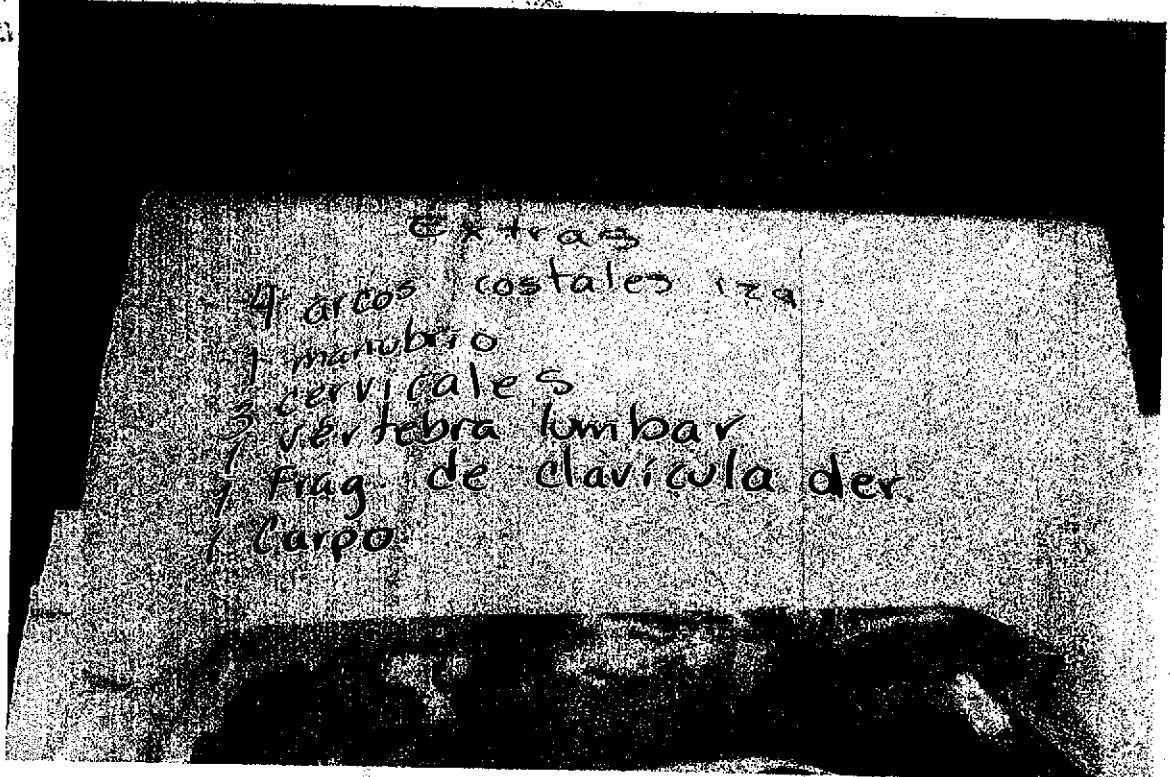 Extras
4 arcos costales izq.
1 manubrio
3 cervicales
1 vértebra lumbar
1 Frag. de clavícula der.
1 Carpo